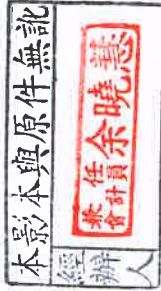 本影本與原件無訛
經辦人
兼任
會計員余曉慧